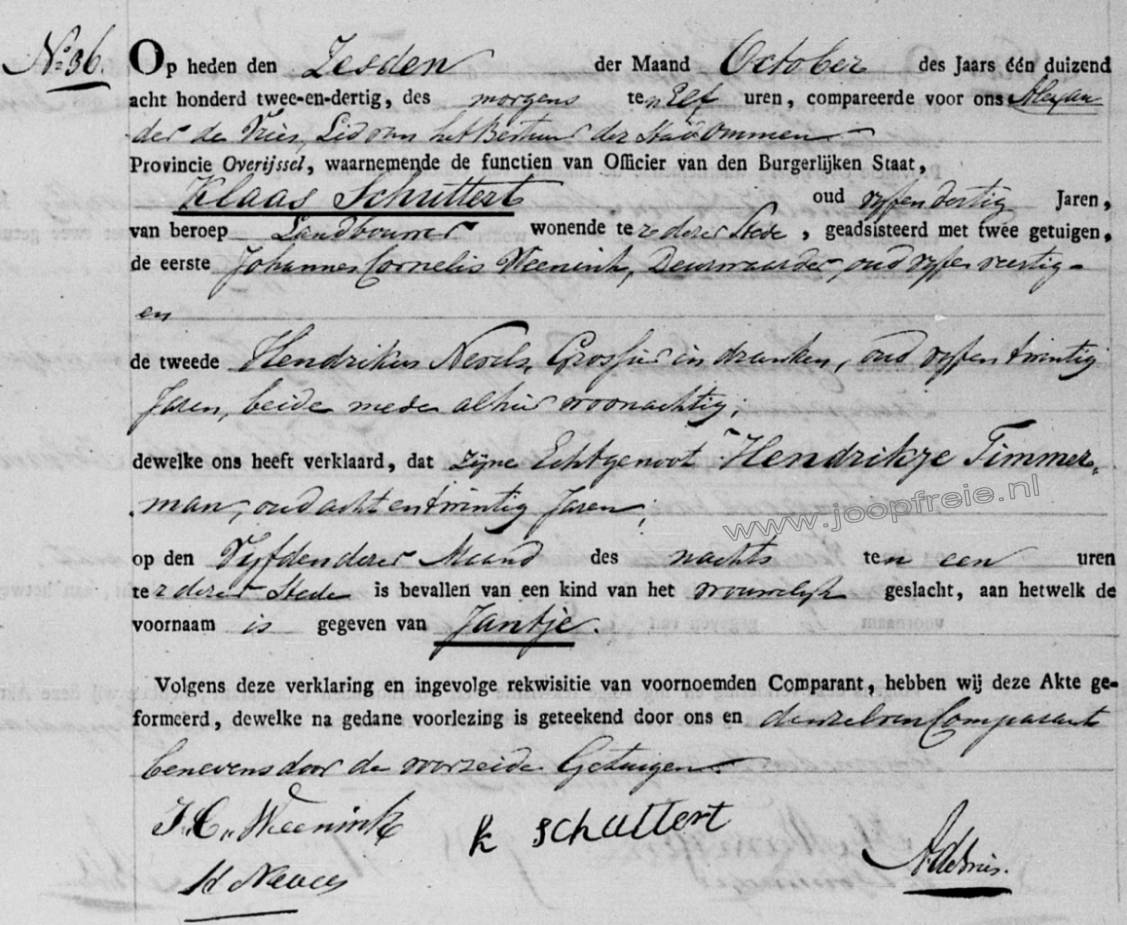 No: 36.
Op heden den Zesden der Maand October des Jaars één duizend
acht honderd twee-en-dertig, des morgens ten Elf uren, compareerde voor ons Alexan
der de Vries, Lid van het Bestuur der Stad Ommen
Provincie Overijssel, waarnemende de functien van Officier van den Burgerlijken Staat,
Klaas Schuttert oud vyfendertig Jaren,
van beroep Landbouwer wonende te zederer Stede, geadsisteerd met twee getuigen,
de eerste Johannes Cornelis Weenink, Deurwaarder, oud vyfenveertig
en
de tweede Hendrikus , Grossier in dranken, oud vyfentwintig
Jaren, beide mede alhier woonachtig;
dewelke ons heeft verklaard, dat zijne Echtgenoot Hendrikje Timmer,,
man, oud achtentwintig Jaren,
www.joopfreie.nl
op den Vyfden dezer Maand des nachts ten een uren
te zderer Stede is bevallen van een kind van het vrouwelyk geslacht, aan hetwelk de
voornaam is gegeven van Jantje.
Volgens deze verklaring en ingevolge rekwisitie van voornoemden Comparant, hebben wij deze Akte ge-
formeerd, dewelke na gedane voorlezing is geteekend door ons en denzelven Comparant
benevens door de voorzeide Getuigen
J. C. Weenink k schuttert
H AdeVries.